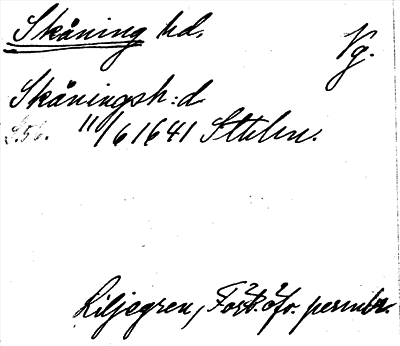 Skåning hd.
Vg.
Skåningsh:d
S.56. 11/6 1641 Sthlm.
Liljegren, Fört. öfv. permbr.